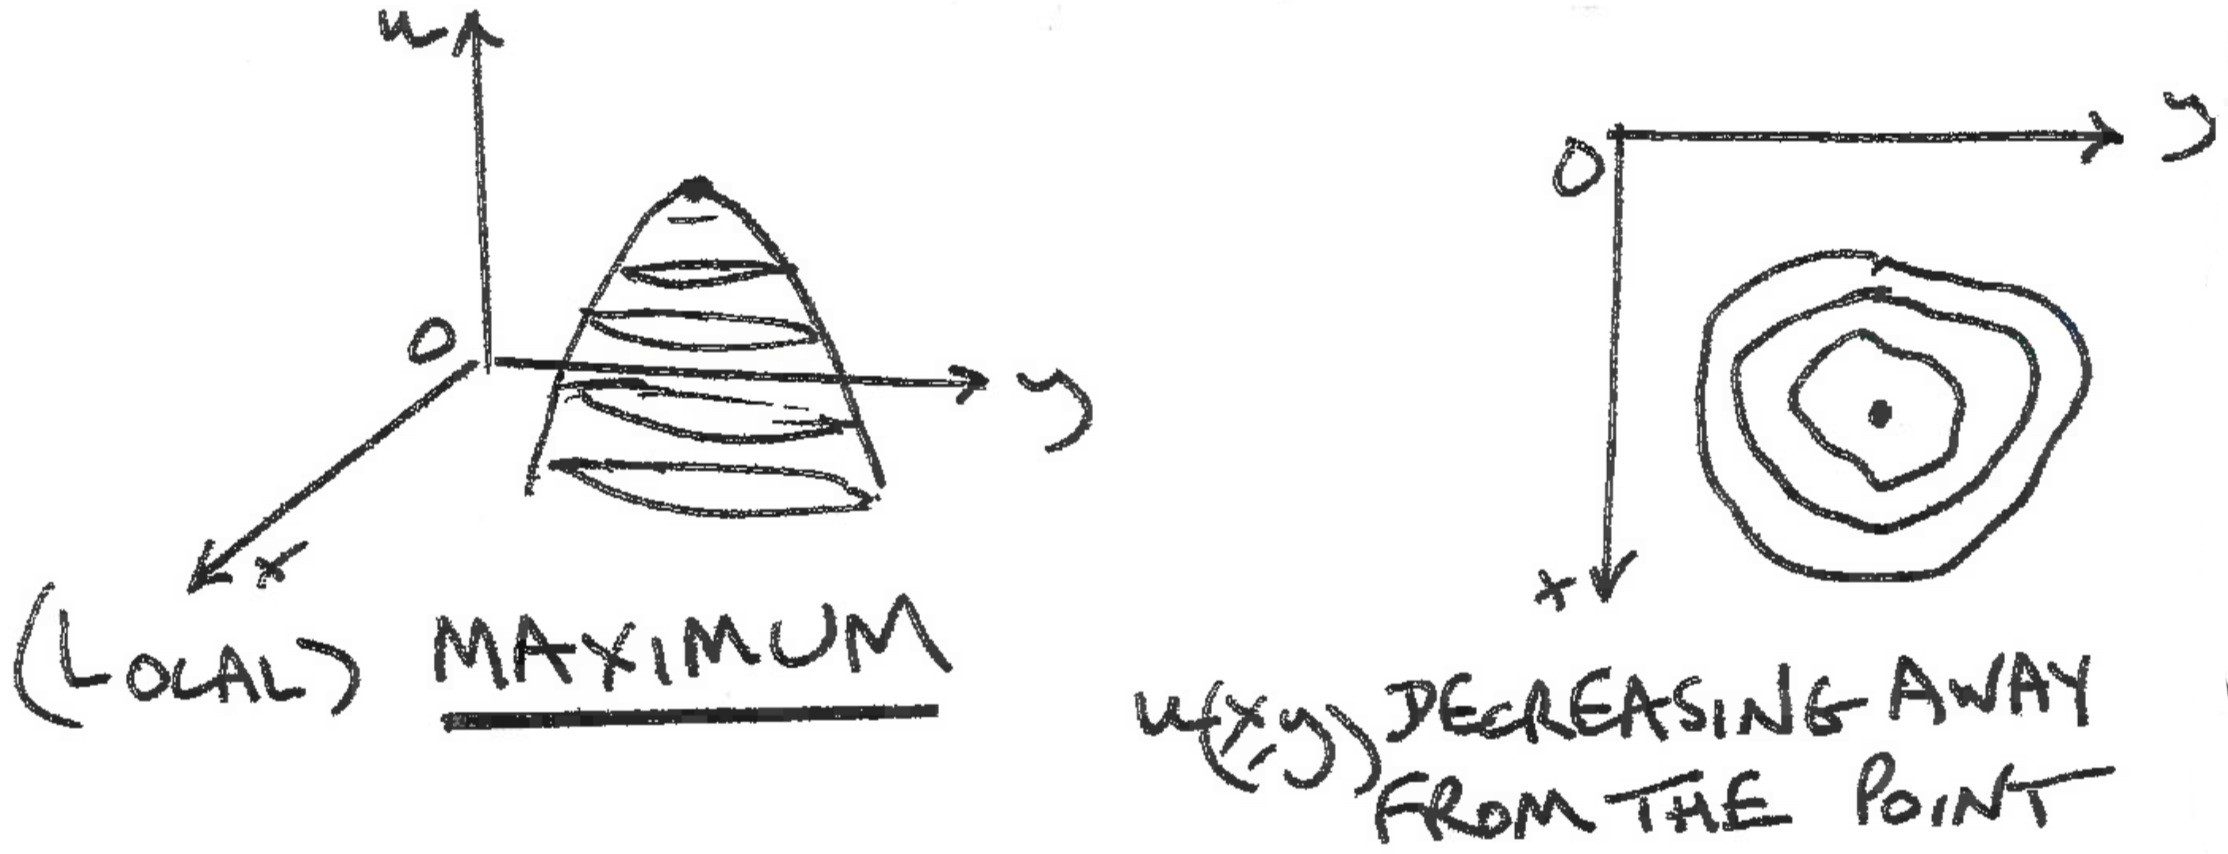 u
O
y
x
(LOCAL) MAXIMUM
O
y
x
u(x,y) DECREASING AWAY
FROM THE POINT